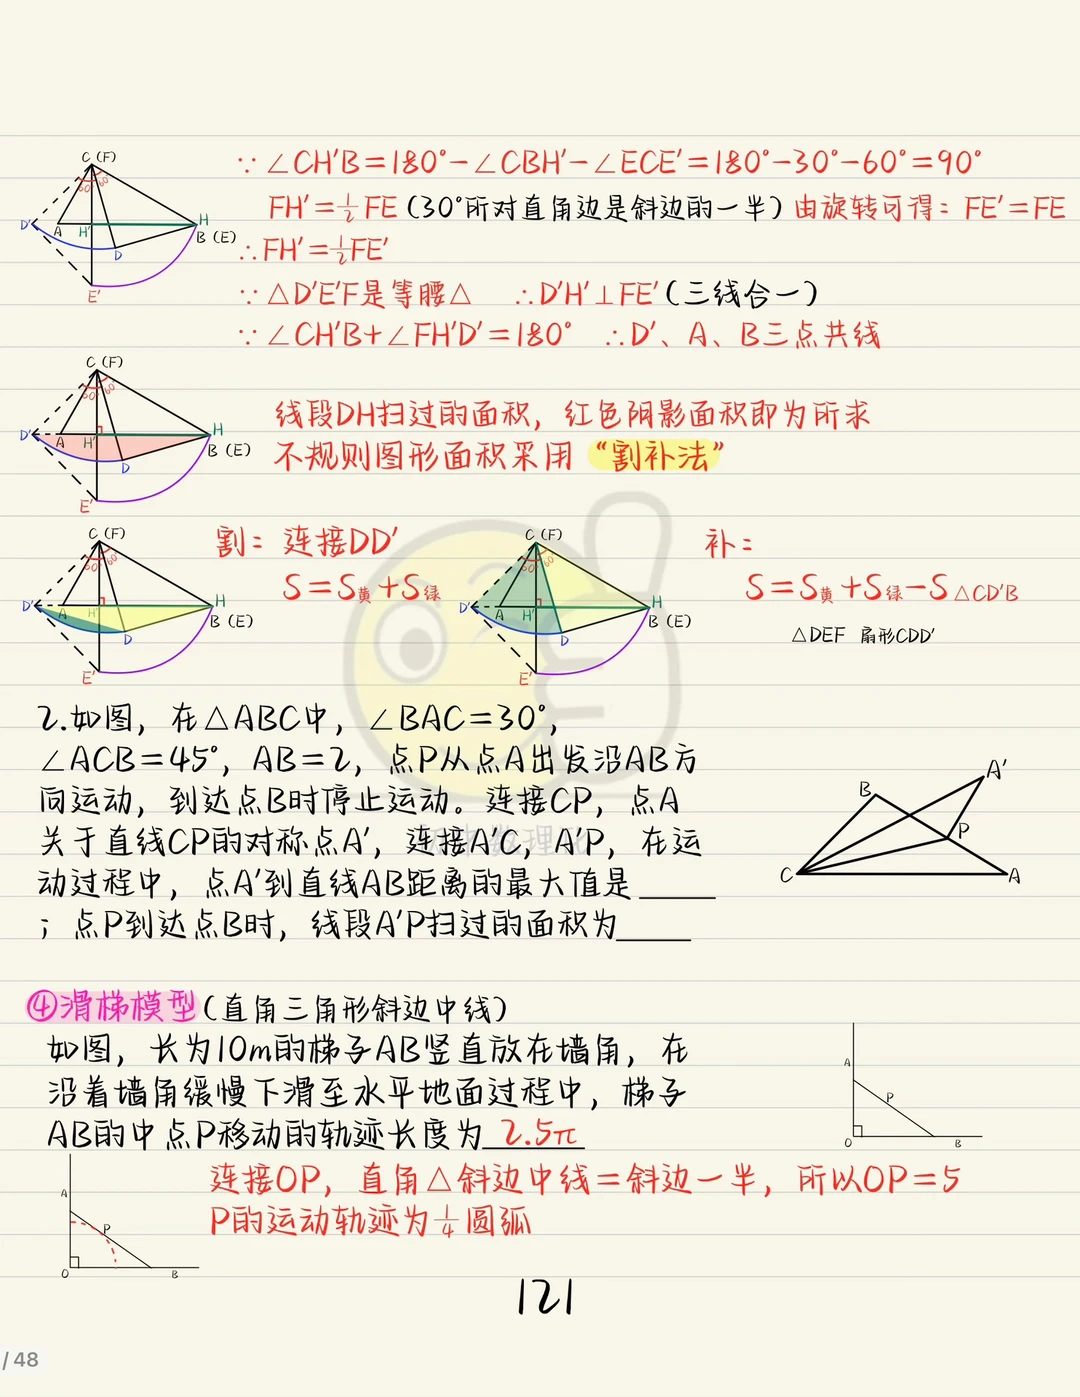 C (F)
60° 60
D' A H' H
B (E)
D
E'
∵ ∠CH'B=180°-∠CBH'-∠ECE'=180°-30°-60°=90°
FH'=½FE (30°所对直角边是斜边的一半) 由旋转可得: FE'=FE
∴FH'=½FE'
∵ △D'E'F是等腰△ ∴D'H'⊥FE'(三线合一)
∵ ∠CH'B+∠FH'D'=180° ∴D'、A、B三点共线
C (F)
60° 60
D' A H' H
B (E)
D
E'
线段DH扫过的面积, 红色阴影面积即为所求
不规则图形面积采用 “割补法”
C (F)
60° 60
D' A H' H
B (E)
D
E'
割: 连接DD'
S=S黄+S绿
C (F)
60° 60
D' A H' H
B (E)
D
E'
补:
S=S黄+S绿-S△CD'B
△DEF 扇形CDD'
2.如图, 在△ABC中, ∠BAC=30°,
∠ACB=45°, AB=2, 点P从点A出发沿AB方
向运动, 到达点B时停止运动。连接CP, 点A
关于直线CP的对称点A', 连接A'C, A'P, 在运
动过程中, 点A'到直线AB距离的最大值是____
; 点P到达点B时, 线段A'P扫过的面积为____
A'
B
P
C A
④滑梯模型(直角三角形斜边中线)
如图, 长为10m的梯子AB竖直放在墙角, 在
沿着墙角缓慢下滑至水平地面过程中, 梯子
AB的中点P移动的轨迹长度为 2.5π
A
P
O B
连接OP, 直角△斜边中线=斜边一半, 所以OP=5
P的运动轨迹为¼圆弧
A
P
O B
121
/ 48